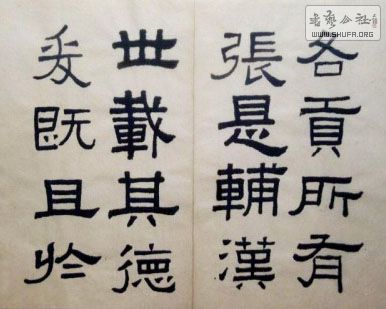 書藝公社
WWW.SHUFA.ORG
各貢所有
張是輔漢
世載其德
爰既且於